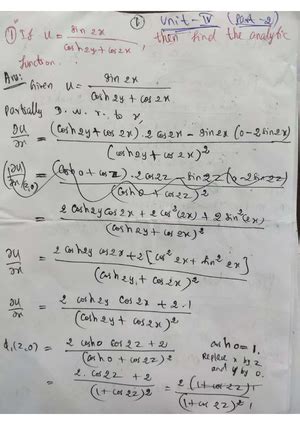 ① Unit-IV (Part-2)
① If u = sin2x / (cosh2y + cos2x), then find the analytic
function.
Ans: Given u = sin2x / (cosh2y + cos2x)
Partially D. w. r. to x,
∂u/∂x = ((cosh2y + cos2x) · 2cos2x − sin2x (0 − 2sin2x)) / (cosh2y + cos2x)²
(∂u/∂x)(z,0) = ((cosh0 + cos2z) · 2cos2z − sin2z (0 − 2sin2z)) / (cosh0 + cos2z)²
= (2cosh2y cos2x + 2cos²(2x) + 2sin²(2x)) / (cosh2y + cos2x)²
∂u/∂x = (2cosh2y cos2x + 2[cos²2x + sin²2x]) / (cosh2y + cos2x)²
∂u/∂x = (2cosh2y cos2x + 2·1) / (cosh2y + cos2x)²
ϕ₁(z,0) = (2cosh0 cos2z + 2) / (cosh0 + cos2z)²
cosh0 = 1.
Replace x by z
and y by 0.
= (2·cos2z + 2) / (1 + cos2z)² = 2(1 + cos2z) / (1 + cos2z)²